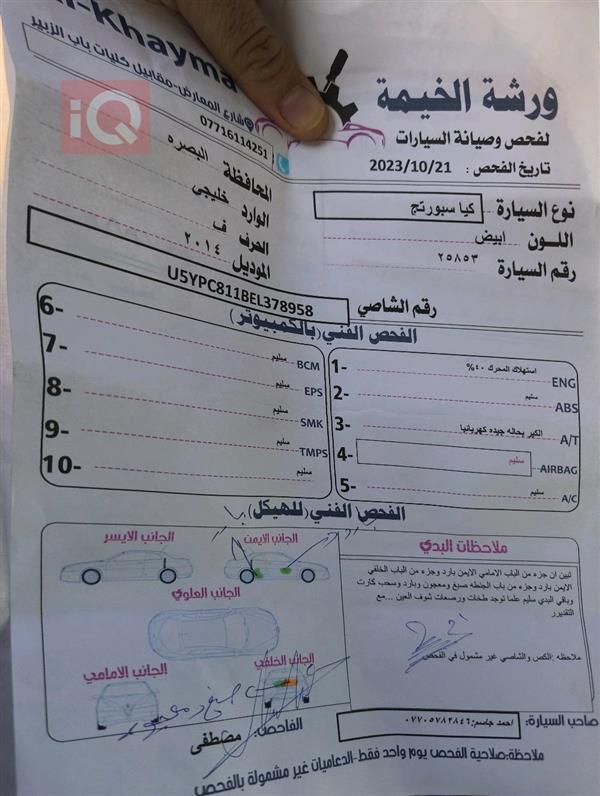 Al-Khayma
شارع المعارض-مقابيل كليات باب الزبير
07716114251
iQ
ورشة الخيمة
لفحص وصيانة السيارات
تاريخ الفحص : 2023/10/21
المحافظة البصره
الوارد خليجي
الحرف ف
الموديل ٢٠١٤
نوع السيارة كيا سبورتج
اللون ابيض
رقم السيارة ٢٥٨٥٣
رقم الشاصي U5YPC811BEL378958
الفحص الفني (بالكمبيوتر)
1- استهلاك المحرك ٤٠% ENG
2- سليم ABS
3- الكير بحاله جيده كهربائيا A/T
4- سليم AIRBAG
5- سليم A/C
6- سليم BCM
7- سليم EPS
8- سليم SMK
9- سليم TMPS
10- سليم
الفحص الفني (للهيكل)
الجانب الايمن
الجانب الايسر
الجانب العلوي
الجانب الخلفي
الجانب الامامي
ملاحظات البدي
تبين ان جزء من الباب الامامي الايمن بارد وجزء من الباب الخلفي
الايمن بارد وجزء من باب الجنطه صبغ ومعجون وبارد وسحب كارت
وباقي البدي سليم علما توجد طخات ورصعات شوف العين ...مع
التقديرر
ملاحظه :الكص والشاصي غير مشمول في الفحص
صبغ ومعجون
الفاحص: مصطفى
صاحب السيارة: احمد جاسم:٠٧٧٠٥٧٨٢٨٤٦
ملاحظة:صلاحية الفحص يوم واحد فقط-الدعاميات غير مشمولة بالفحص